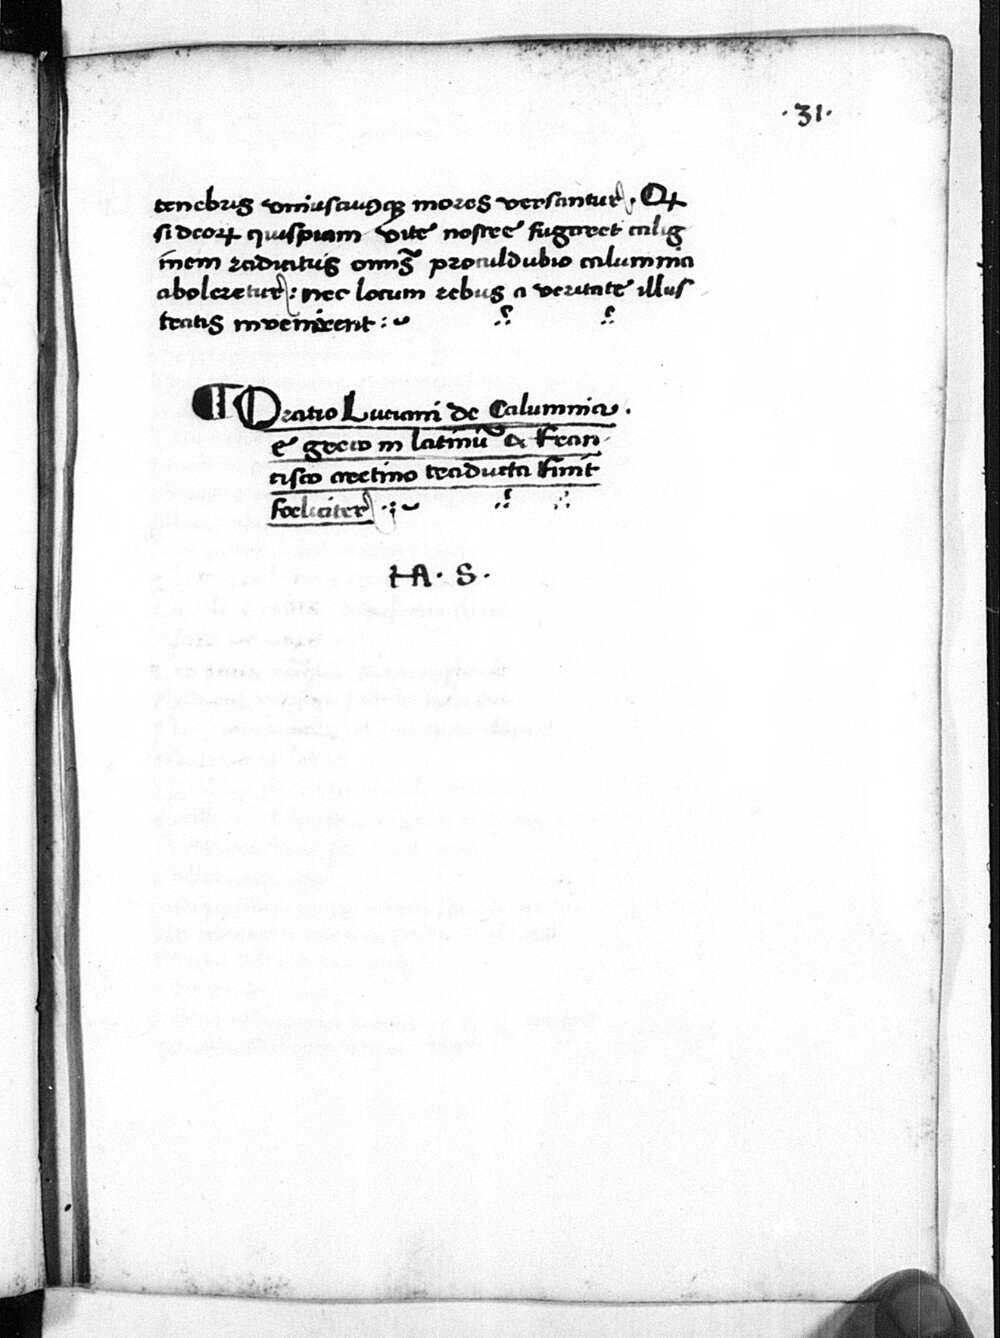 · 31 ·
tenebris uniuscuiusq; mores versantur. Qꝫ
si deoꝝ quispiam vite nostre fugaret calig
inem radiatus omnis̄ proculdubio calumnia
aboleretur: nec locum rebus a veritate illus
tratis invenirent :~
¶ Oratio Luciani de Calumnia .
e greco in latinū a Fran-
cisco aretino traducta finit
foeliciter :~
HA . S .